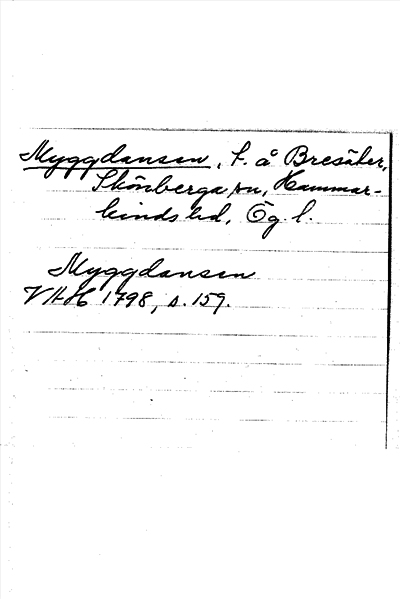 Myggdansen, t. å Bresäter,
Skönberga sn, Hammar-
kinds hd, Ög l.
Myggdansen
VHH 1798, s. 159.